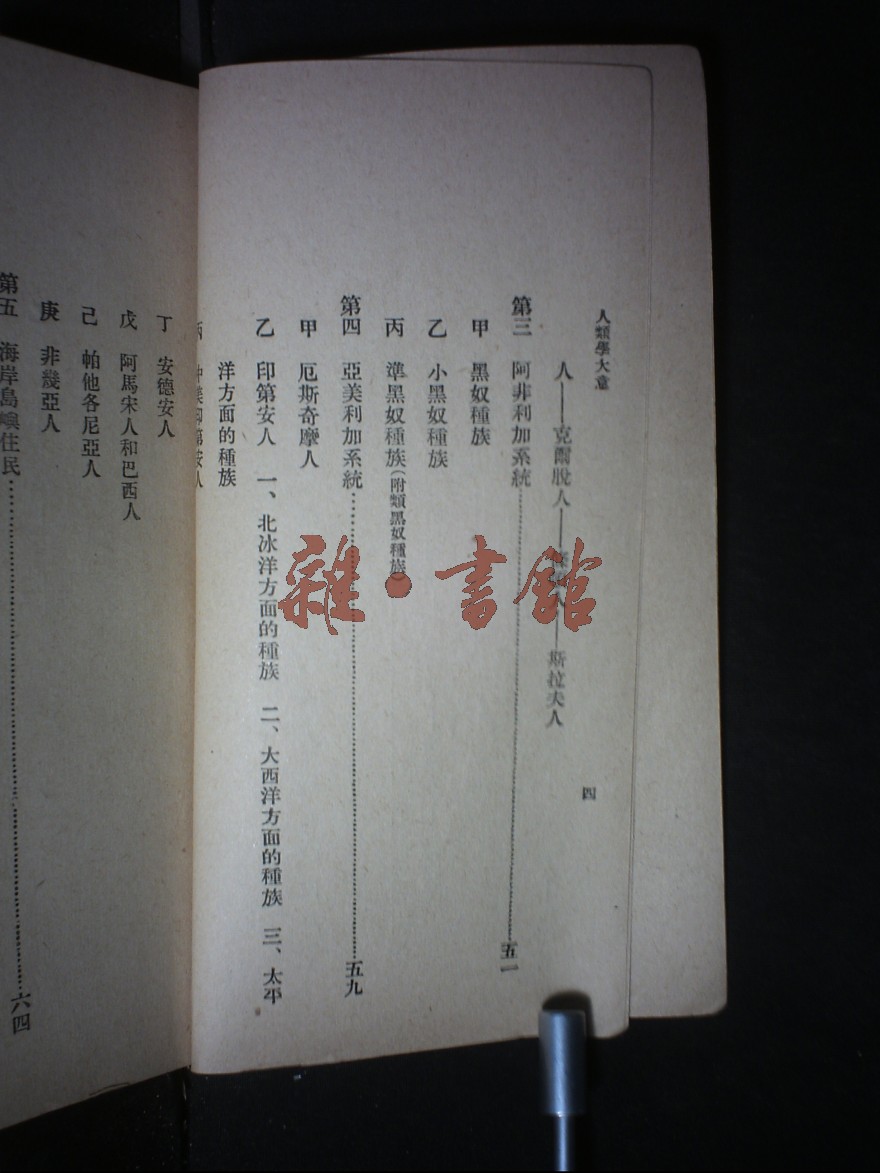 人類學大意
四
人——克爾脫人——人——斯拉夫人
第三 阿非利加系統……五一
甲 黑奴種族
乙 小黑奴種族
丙 準黑奴種族(附類黑奴種族)
第四 亞美利加系統……五九
甲 厄斯奇摩人
乙 印第安人 一、北冰洋方面的種族 二、大西洋方面的種族 三、太平
洋方面的種族
丙 中美印第安人
丁 安德安人
戊 阿馬宋人和巴西人
己 帕他各尼亞人
庚 非幾亞人
第五 海岸島嶼住民……六四
雜·書館